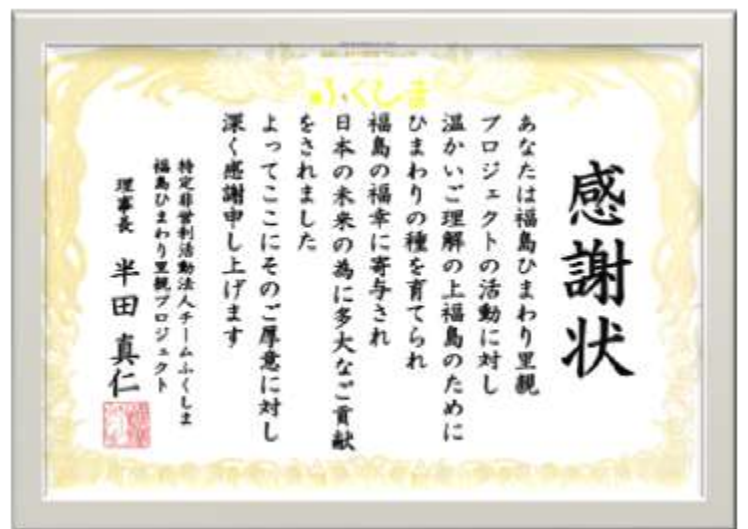 ふくしま
感謝状
あなたは福島ひまわり里親
プロジェクトの活動に対し
温かいご理解の上福島のために
ひまわりの種を育てられ
福島の福幸に寄与され
日本の未来の為に多大なご貢献
をされました
よってここにそのご厚意に対し
深く感謝申し上げます
特定非営利活動法人チームふくしま
福島ひまわり里親プロジェクト
理事長 半田 真仁